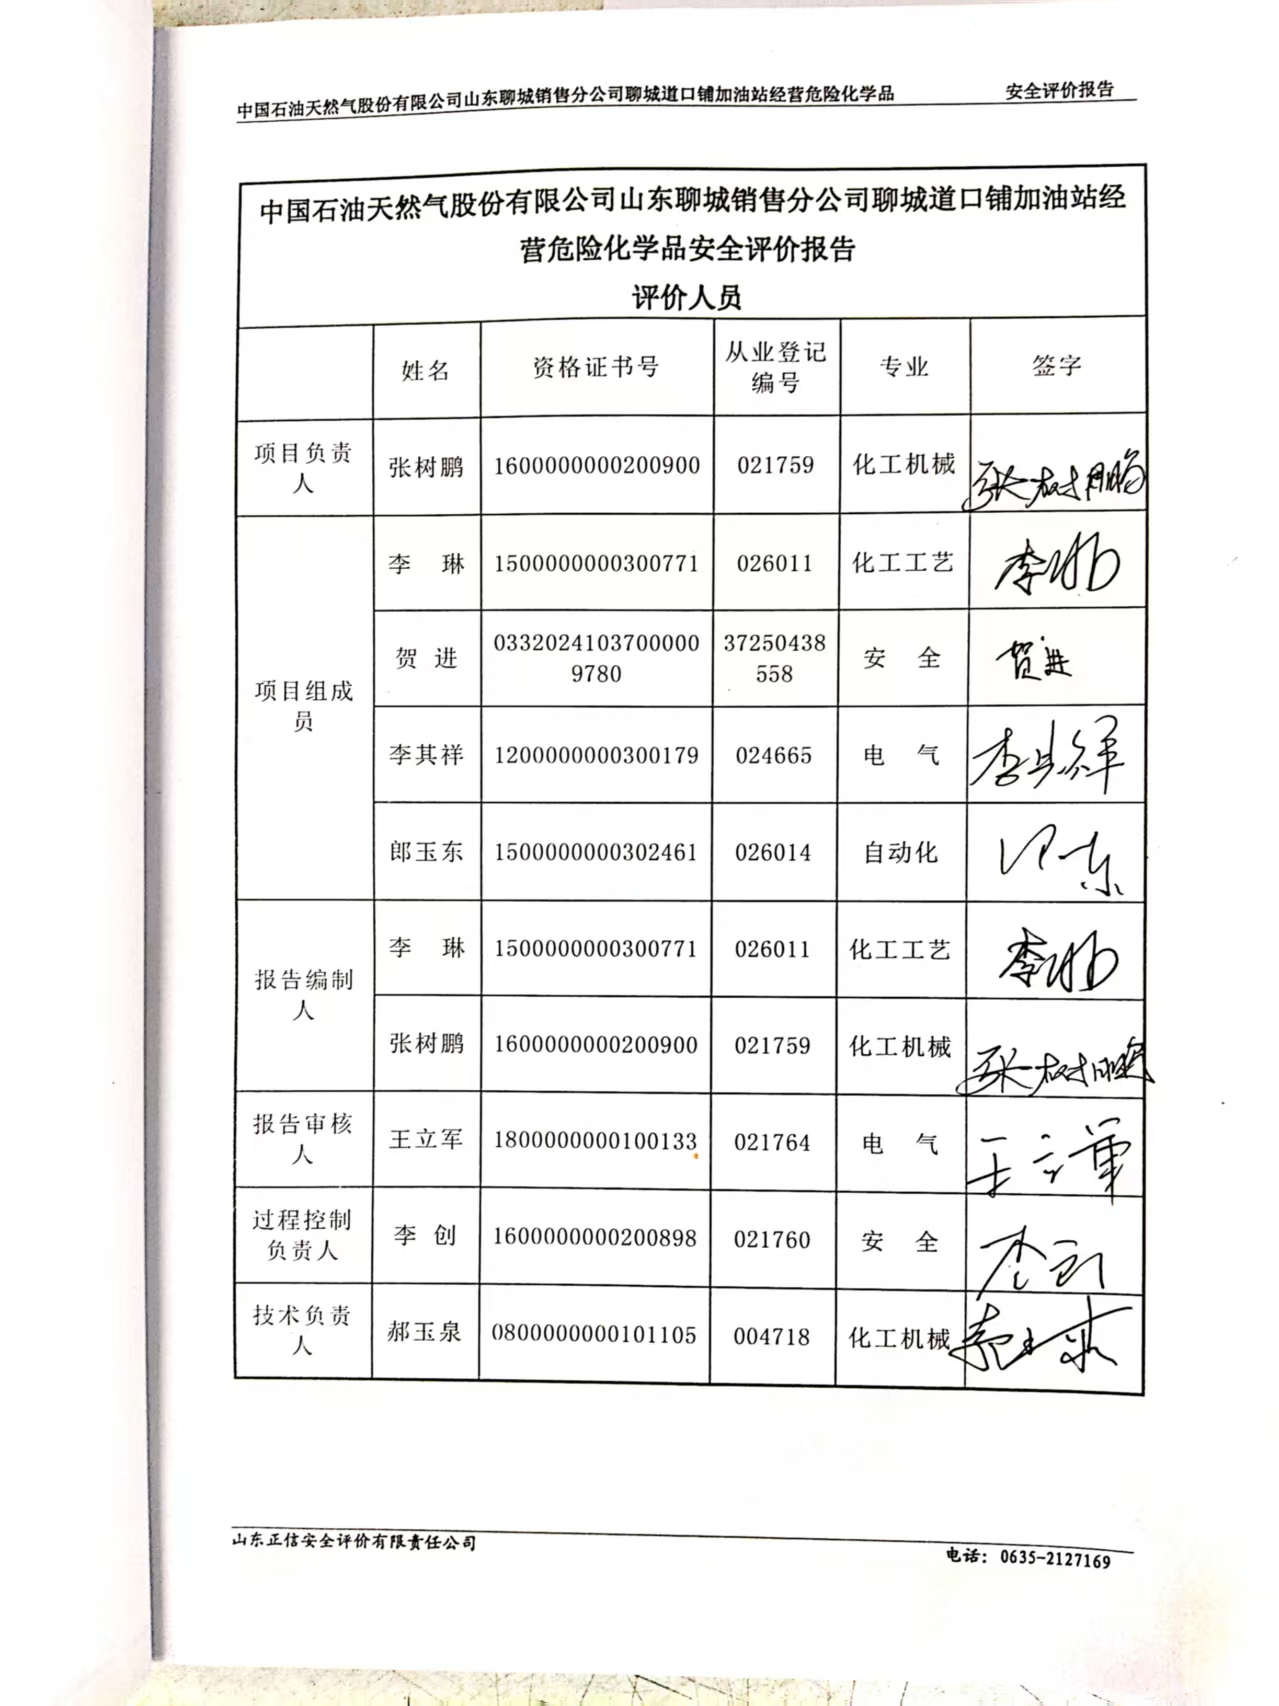 中国石油天然气股份有限公司山东聊城销售分公司聊城道口铺加油站经营危险化学品 安全评价报告
中国石油天然气股份有限公司山东聊城销售分公司聊城道口铺加油站经
营危险化学品安全评价报告
评价人员
姓名 资格证书号 从业登记编号 专业 签字
项目负责人 张树鹏 1600000000200900 021759 化工机械 张树鹏
项目组成员 李 琳 1500000000300771 026011 化工工艺 李琳
贺 进 03320241037000009780 37250438558 安 全 贺进
李其祥 1200000000300179 024665 电 气 李其祥
郎玉东 1500000000302461 026014 自动化
报告编制人 李 琳 1500000000300771 026011 化工工艺 李琳
张树鹏 1600000000200900 021759 化工机械 张树鹏
报告审核人 王立军 1800000000100133 021764 电 气 王立军
过程控制负责人 李 创 1600000000200898 021760 安 全 李创
技术负责人 郝玉泉 0800000000101105 004718 化工机械 郝玉泉
山东正信安全评价有限责任公司 电话：0635-2127169